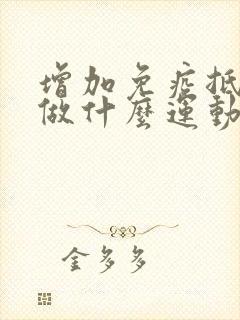 增加免疫抵
做什麼運動
金多多